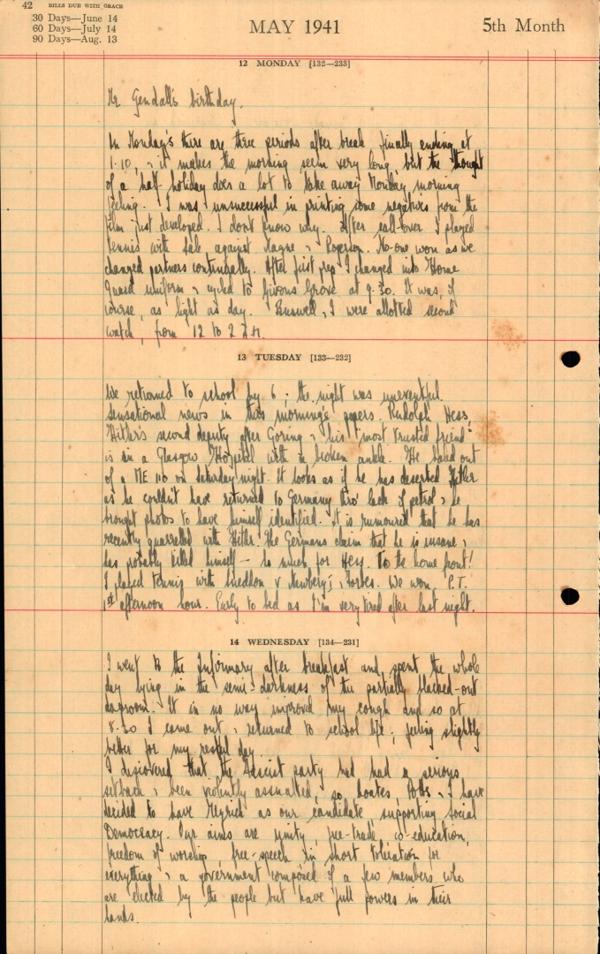 42 BILLS DUE WITH GRACE
30 Days—June 14
60 Days—July 14
90 Days—Aug. 13
MAY 1941
5th Month
12 MONDAY [132-233]
Mr Gendall's birthday.
In Monday's there are three periods after break finally ending at
1.10, & it makes the morning seem very long, but the thought
of a half holiday does a lot to take away Monday morning
feeling. I was unsuccessful in printing some negatives from the
film just developed. I dont know why. After call-over I played
tennis with Sale against Magne & Rogerson. No-one won as we
changed partners continually. After first prep I changed into Home
Guard uniform & cycled to Givons Grove at 9.30. It was, of
course, as light as day. Buswell & I were allotted second
watch, from 12 to 2 a.m.
13 TUESDAY [133-232]
We returned to school by 6; the night was uneventful.
Sensational news in this morning's papers. Rudolph Hess,
Hitler's second deputy after Goring & his "most trusted friend"
is in a Glasgow Hospital with a broken ankle. He baled out
of a ME 110 on Saturday night. It looks as if he has deserted Hitler
as he couldn't have returned to Germany thro' lack of petrol & he
brought photos to have himself identified. It is rumoured that he has
recently quarrelled with Hitler. The Germans claim that he is insane &
has probably killed himself — so much for Hess. To the home front!
I played tennis with Sneddon v Newbery & Forbes. We won. P.T.
1st afternoon hour. Early to bed as I'm very tired after last night.
14 WEDNESDAY [134-231]
I went to the Infirmary after breakfast and spent the whole
day lying in the semi-darkness of the partially blacked-out
dayroom. It in no way improved my cough and so at
8.30 I came out & returned to school life, feeling slightly
better for my restful day.
I discovered that the Fascist party had had a serious
setback & been violently so & I have
decided to have as our candidate supporting Social
Democracy. Our aims are unity, free-trade, co-education,
freedom of worship, free-speech in short toleration for
everything & a government composed of a few members who
are elected by the people but have full powers in their
hands.